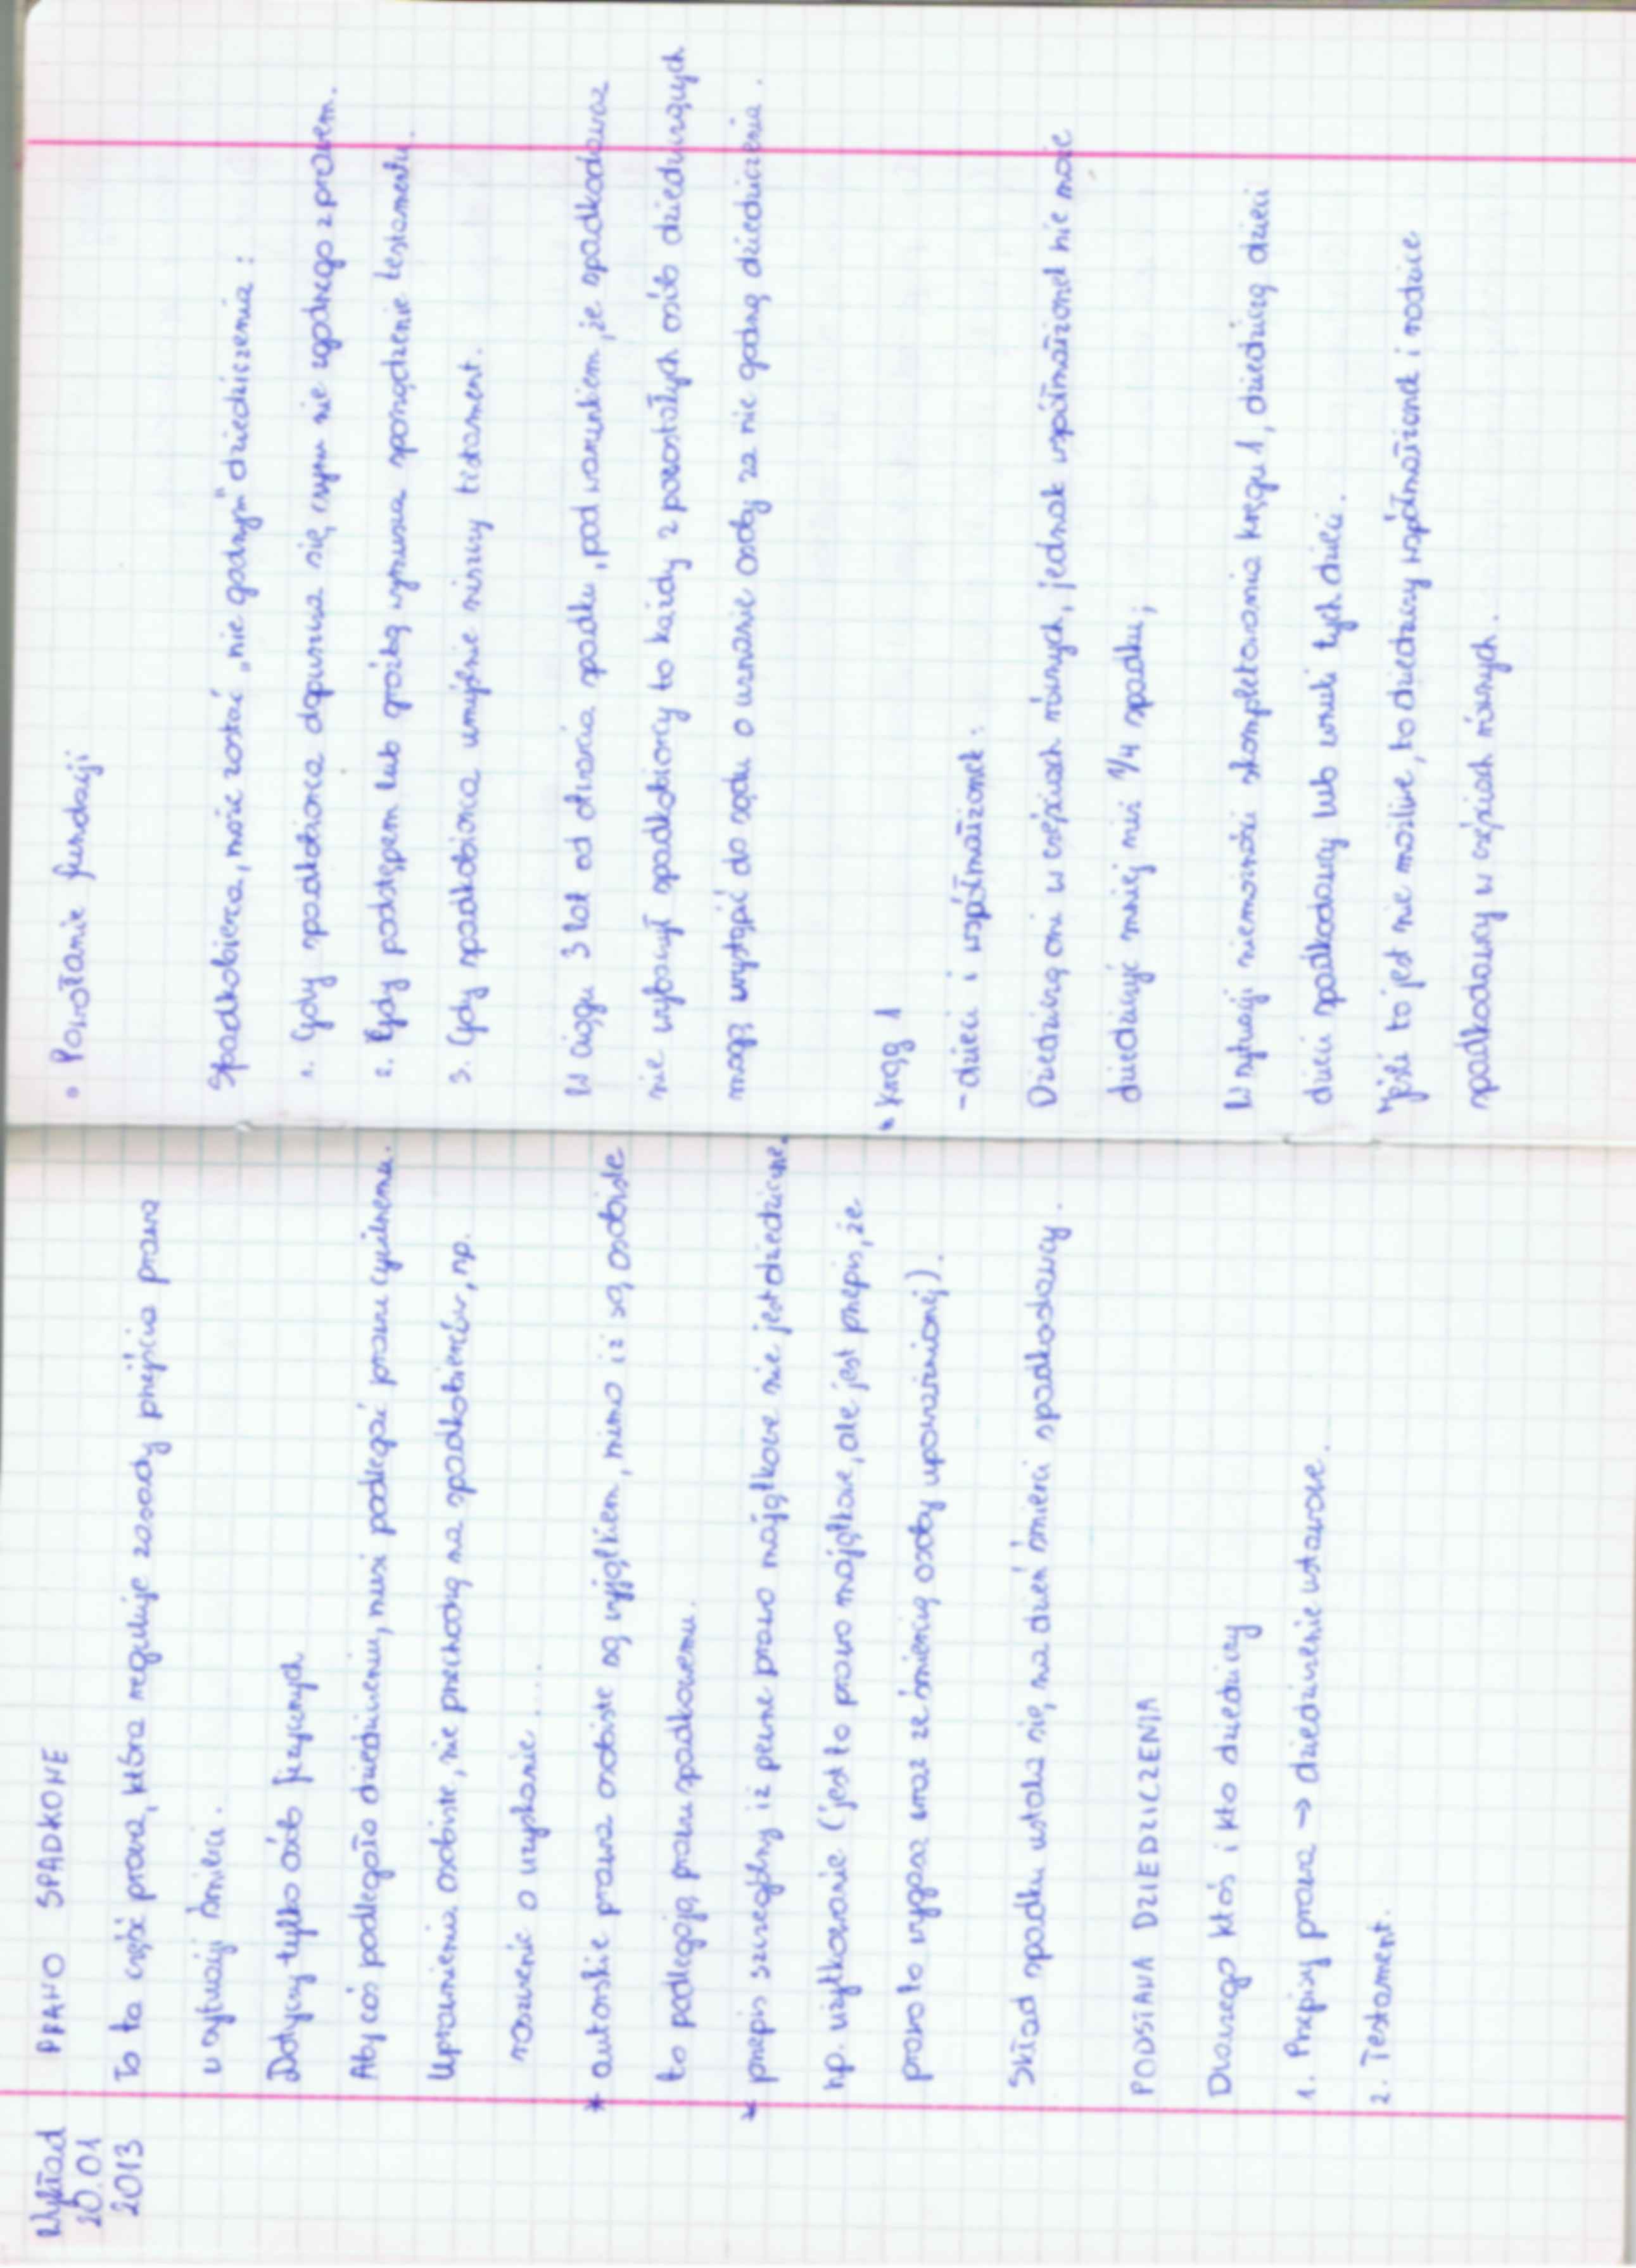 Wykład
20.01
2013
PRAWO SPADKOWE
To ta część prawa, która reguluje zasady przejścia prawa
w sytuacji śmierci.
Dotyczy tylko osób fizycznych
Aby coś podlegało dziedziczeniu, musi podlegać prawu cywilnemu.
Uprawnienia osobiste, nie przechodzą na spadkobierców, np.
roszczenie o uzyskanie ....
* autorskie prawa osobiste są wyjątkiem, mimo iż są osobiste
to podlegają prawu spadkowemu.
* przepis szczególny iż pewne prawo majątkowe nie jest dziedziczne.
np. użytkowanie (jest to prawo majątkowe, ale jest przepis, że
prawo to wygasa wraz ze śmiercią osoby uprawnionej).
Skład spadku ustala się, na dzień śmierci spadkodawcy.
PODSTAWA DZIEDZICZENIA
Dlaczego ktoś i kto dziedziczy
1. Przepisy prawa → dziedziczenie ustawowe.
2. Testament.
• Powołanie fundacji
Spadkobierca, może zostać „nie godnym" dziedziczenia :
1. Gdy spadkobierca dopuszcza się, czynu nie zgodnego z prawem.
2. Gdy podstępem lub groźbą wymusza sporządzenie testamentu.
3. Gdy spadkobierca umyślnie niszczy testament.
W ciągu 3 lat od otwarcia spadku, pod warunkiem, że spadkodawca
nie wybaczył spadkobiercy to każdy z pozostałych osób dziedziczących
mogą wystąpić do sądu o uznanie osoby za nie godną dziedziczenia.
* Krąg 1
- dzieci i współmałżonek:
Dziedziczą oni w częściach równych, jednak współmałżonek nie może
dziedziczyć mniej niż 1/4 spadku;
W sytuacji niemożności skompletowania kręgu 1, dziedziczą dzieci
dzieci spadkodawcy lub wnuki tych dzieci.
Jeśli to jest nie możliwe, to dziedziczy współmałżonek i rodzice
spadkodawcy w częściach równych.